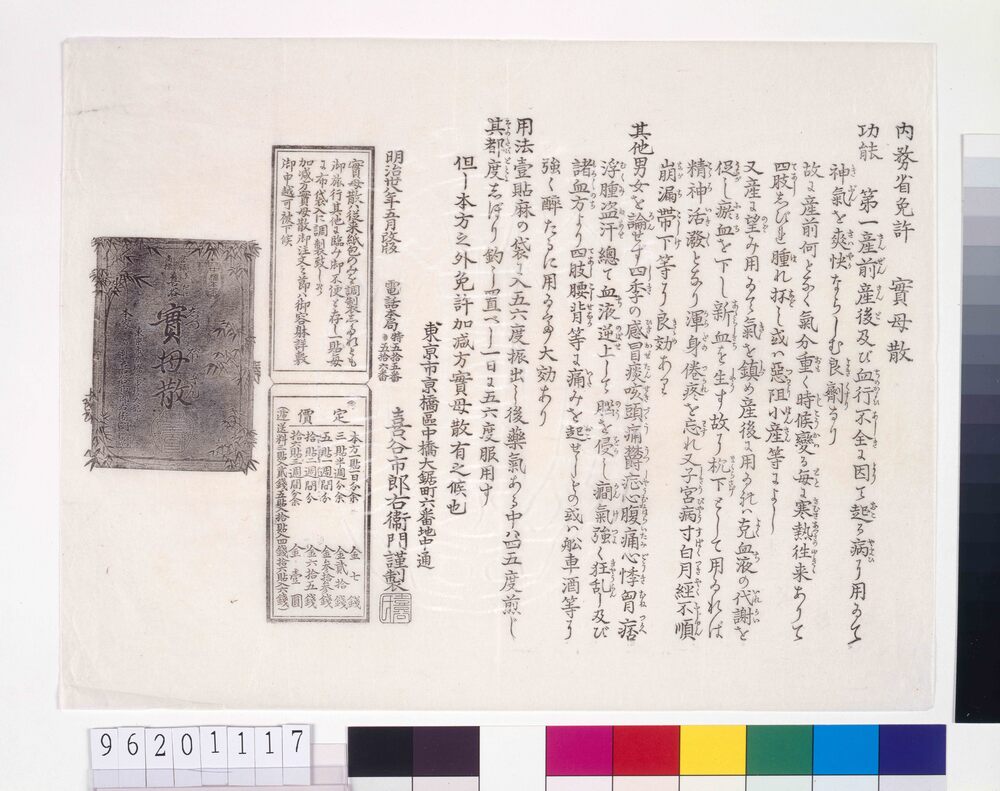 內務省免許　實母散
功能　第一産前産後及び血行不全に因て起る病に用ゐて
神氣を爽快ならしむ良劑なり
故に産前何となく氣分重く時候變る毎に寒熱徃来ありて
四肢しびれ腫れ抔し或ハ惡阻小産等によし
又産に望み用ゐて氣を鎮め産後に用ゐれハ克血液の代謝を
促し瘀血を下し新血を生す故に枕下として用ゐれば
精神活潑となり渾身倦疼を忘れ又子宮病寸白月經不順
崩漏帶下等に良効あり
其他男女を論せす四季の感冒痰咳頭痛欝症心腹痛心悸胷痞
浮腫盗汗總て血液逆上して腦を侵し癇氣強く狂乱し及び
諸血方より四肢腰背等に痛みを起せしもの或ハ舩車酒等に
強く醉たるに用ゐて大効あり
用法壹貼麻の袋に入五六度振出し後藥氣ある中ハ四五度煎じ
其都度しぼり釣し置べし一日に五六度服用す
但し本方之外免許加减方實母散有之候也
東京市京橋區中橋大鋸町六番地中通
喜谷市郎右衞門謹製
明治卅八年五月改政　電話本局 特五十五番 五十六番
實母散ハ從来紙包のみを調製
御旅行其他に臨み御不便を存し一貼毎
に布袋入に調製致し
加减方實母散御注文之節ハ御容躰詳敷
御申越可被下候
定價
本方一貼一日分余　金七錢
三貼半週分余　金貳拾錢
五貼一週間分　金叁拾叁錢
拾貼二週間分　金六拾五錢
拾六貼三週間分余　金壹圓
(運送料三貼入貳錢五貼入拾貼入四錢拾六貼入六錢)
實母散
96201117